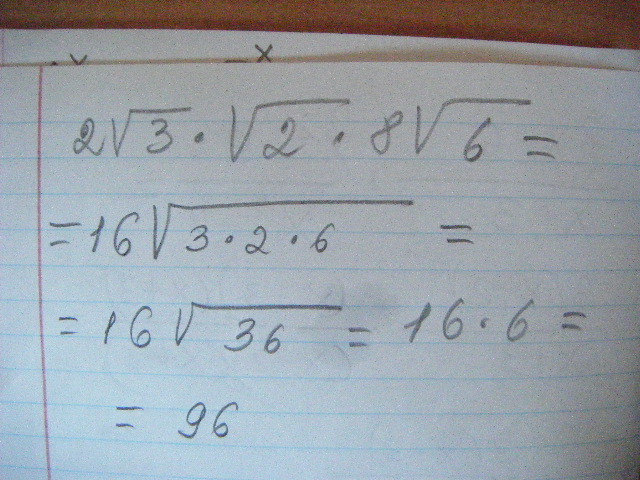 2√3 · √2 · 8√6 =
= 16√3·2·6 =
= 16√36 = 16·6 =
= 96